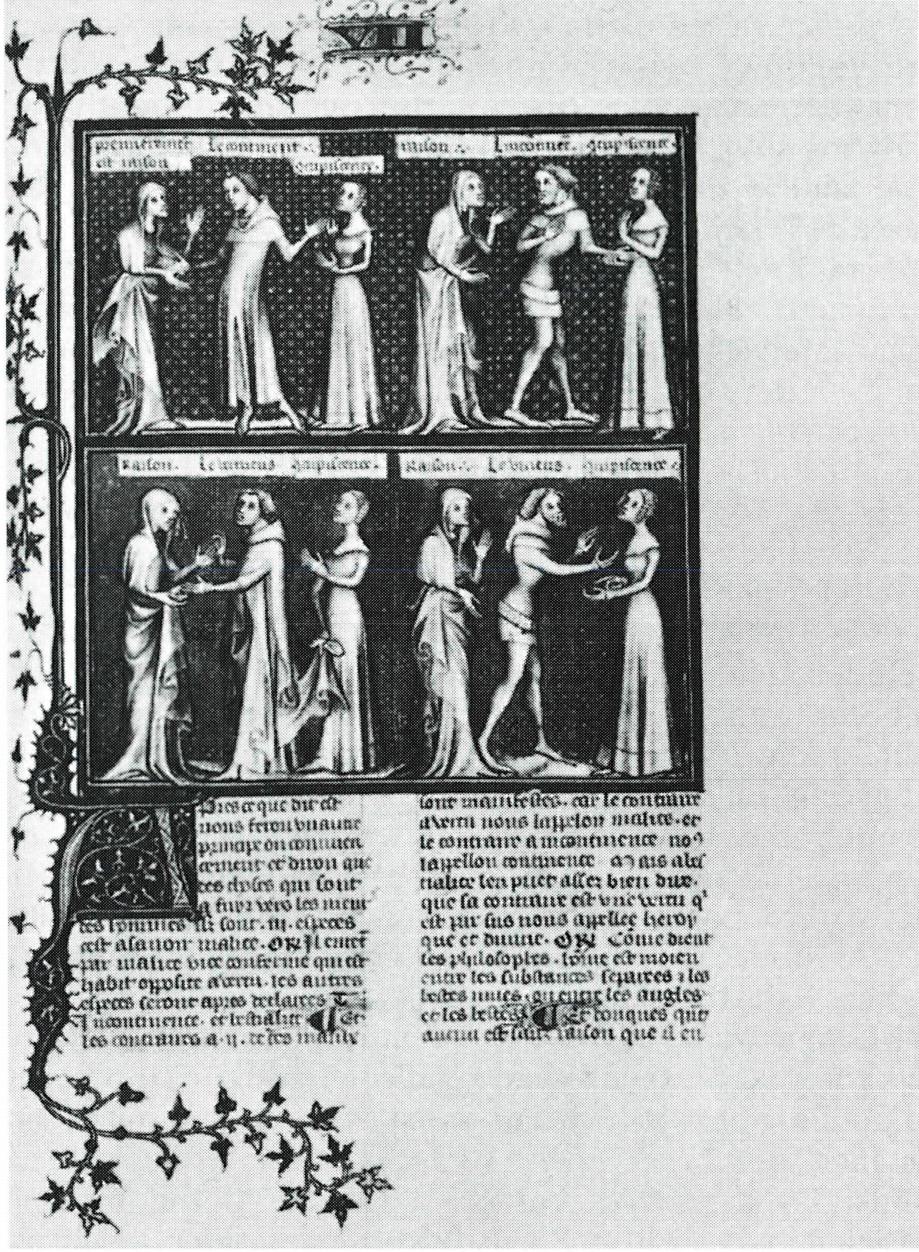 VII
premierement Le continent. raison. Lincontinent. concupiscence.
est raison concupiscence.
Raison. Le vertueus concupiscence Raison. Le vicieus. concupiscence
Apres ce que dit est
nous ferons un autre
ces choses qui sont
a fuir vers les meurs
des hommes si sont .iii. especes
cest asavoir malice. Or il entent
par malice vice conferme qui est
habit opposite a vertu. les autres
especes seront apres declarees T.
Incontinence. et bestialite Et
les contraires a .ii. de ces malices
sont manifestes. car le contraire
a vertu nous lappelon malice. et
le contraire a incontinence nos
lappellon continence Mais a bes
tialite len puet assez bien dire.
que sa contraire est une vertu qui
est sur sus nous appellee heroy
que et divine. Or Come dient
les philosophes. lome est moien
entre les substances separees et les
bestes mues. ou entre les angles
et les bestes. Et donques quant
aucun est sans raison que il en